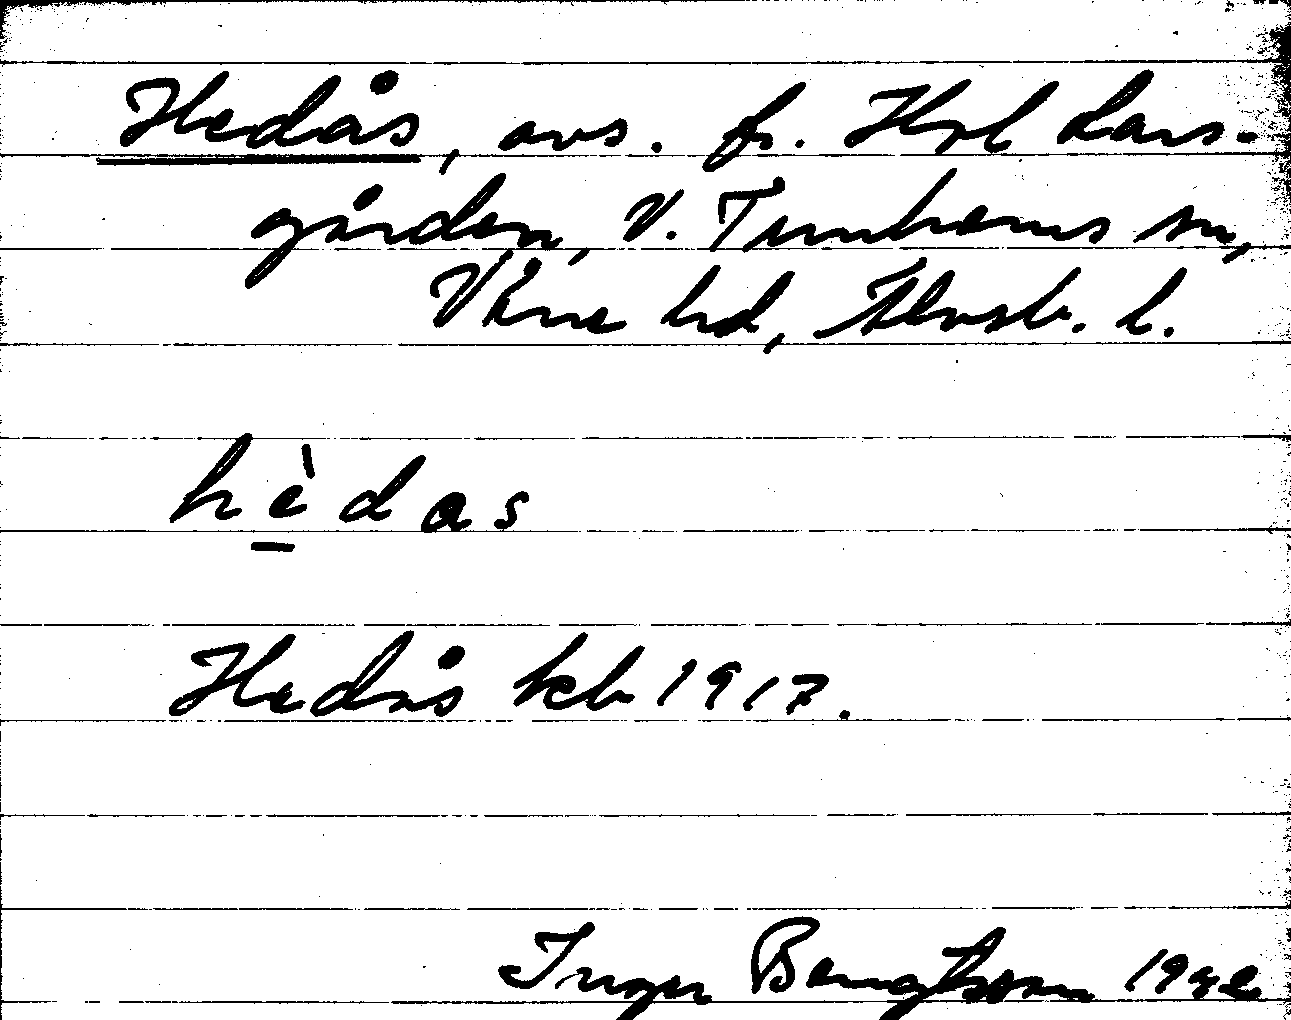 Hedås, avs. fr. Hol Lars-
gården, V. Tunhems sn,
Väne hd, Älvsb. l.
hèdas
Hedås kb 1917.
Inger Bengtsson